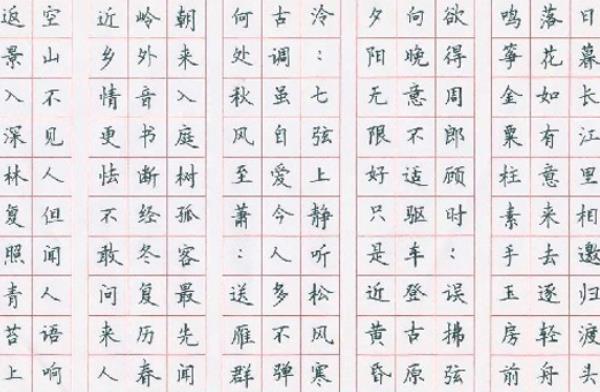 日暮长江里相邀归渡头
落花如有意来去逐轻舟
鸣筝金粟柱素手玉房前
欲得周郎顾时：误拂弦
向晚意不适驱车登古原
夕阳无限好只是近黄昏
泠：七弦上静听松风寒
古调虽自爱今人多不弹
何处秋风至萧：送雁群
朝来入庭树孤客最先闻
岭外音书断经冬复历春
近乡情更怯不敢问来人
空山不见人但闻人语响
返景入深林复照青苔上